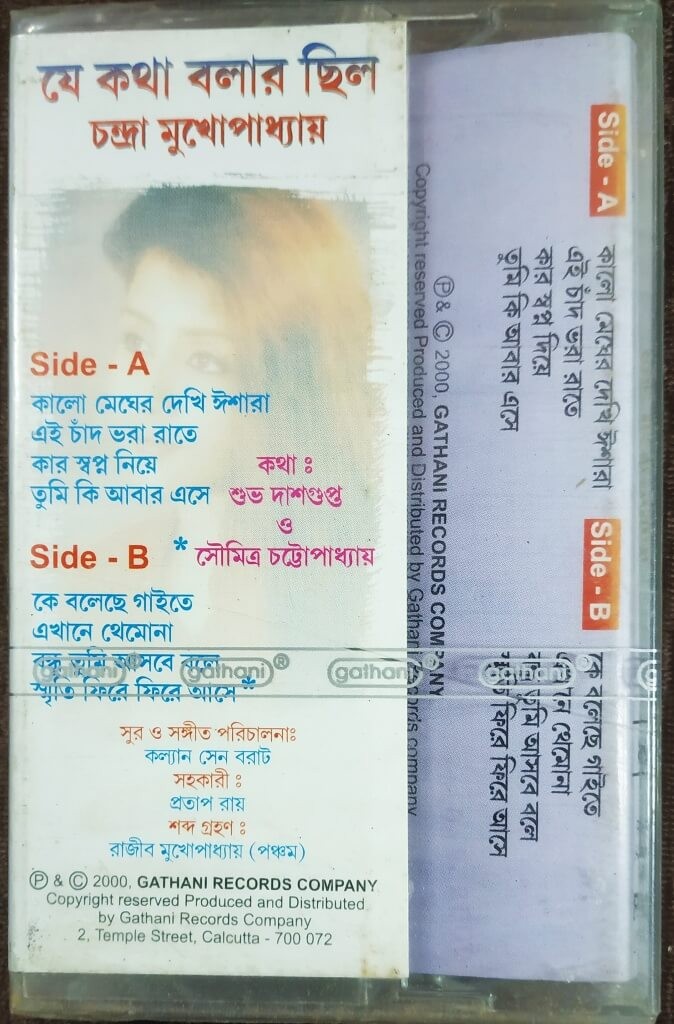 যে কথা বলার ছিল
চন্দ্রা মুখোপাধ্যায়
Side - A
কালো মেঘের দেখি ঈশারা
এই চাঁদ ভরা রাতে
কার স্বপ্ন নিয়ে
তুমি কি আবার এসে
কথা ঃ
শুভ দাশগুপ্ত
ও
* সৌমিত্র চট্টোপাধ্যায়
Side - B
কে বলেছে গাইতে
এখানে থেমোনা
বন্ধু তুমি আসবে বলে
স্মৃতি ফিরে ফিরে আসে *
gathani® gathani® gathani® gathani®
সুর ও সঙ্গীত পরিচালনাঃ
কল্যান সেন বরাট
সহকারী ঃ
প্রতাপ রায়
শব্দ গ্রহণ ঃ
রাজীব মুখোপাধ্যায় (পঞ্চম)
Ⓟ & © 2000, GATHANI RECORDS COMPANY
Copyright reserved Produced and Distributed
by Gathani Records Company
2, Temple Street, Calcutta - 700 072
Side - A
কালো মেঘের দেখি ঈশারা
এই চাঁদ ভরা রাতে
কার স্বপ্ন দিয়ে
তুমি কি আবার এসে
Side - B
কে বলেছে গাইতে
এখানে থেমোনা
বন্ধু তুমি আসবে বলে
স্মৃতি ফিরে ফিরে আসে
Ⓟ & © 2000, GATHANI RECORDS COMPANY
Copyright reserved Produced and Distributed by Gathani Records company